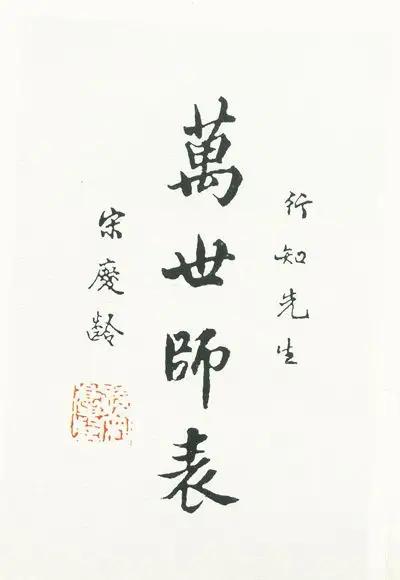 行知先生
萬世師表
宋慶齡